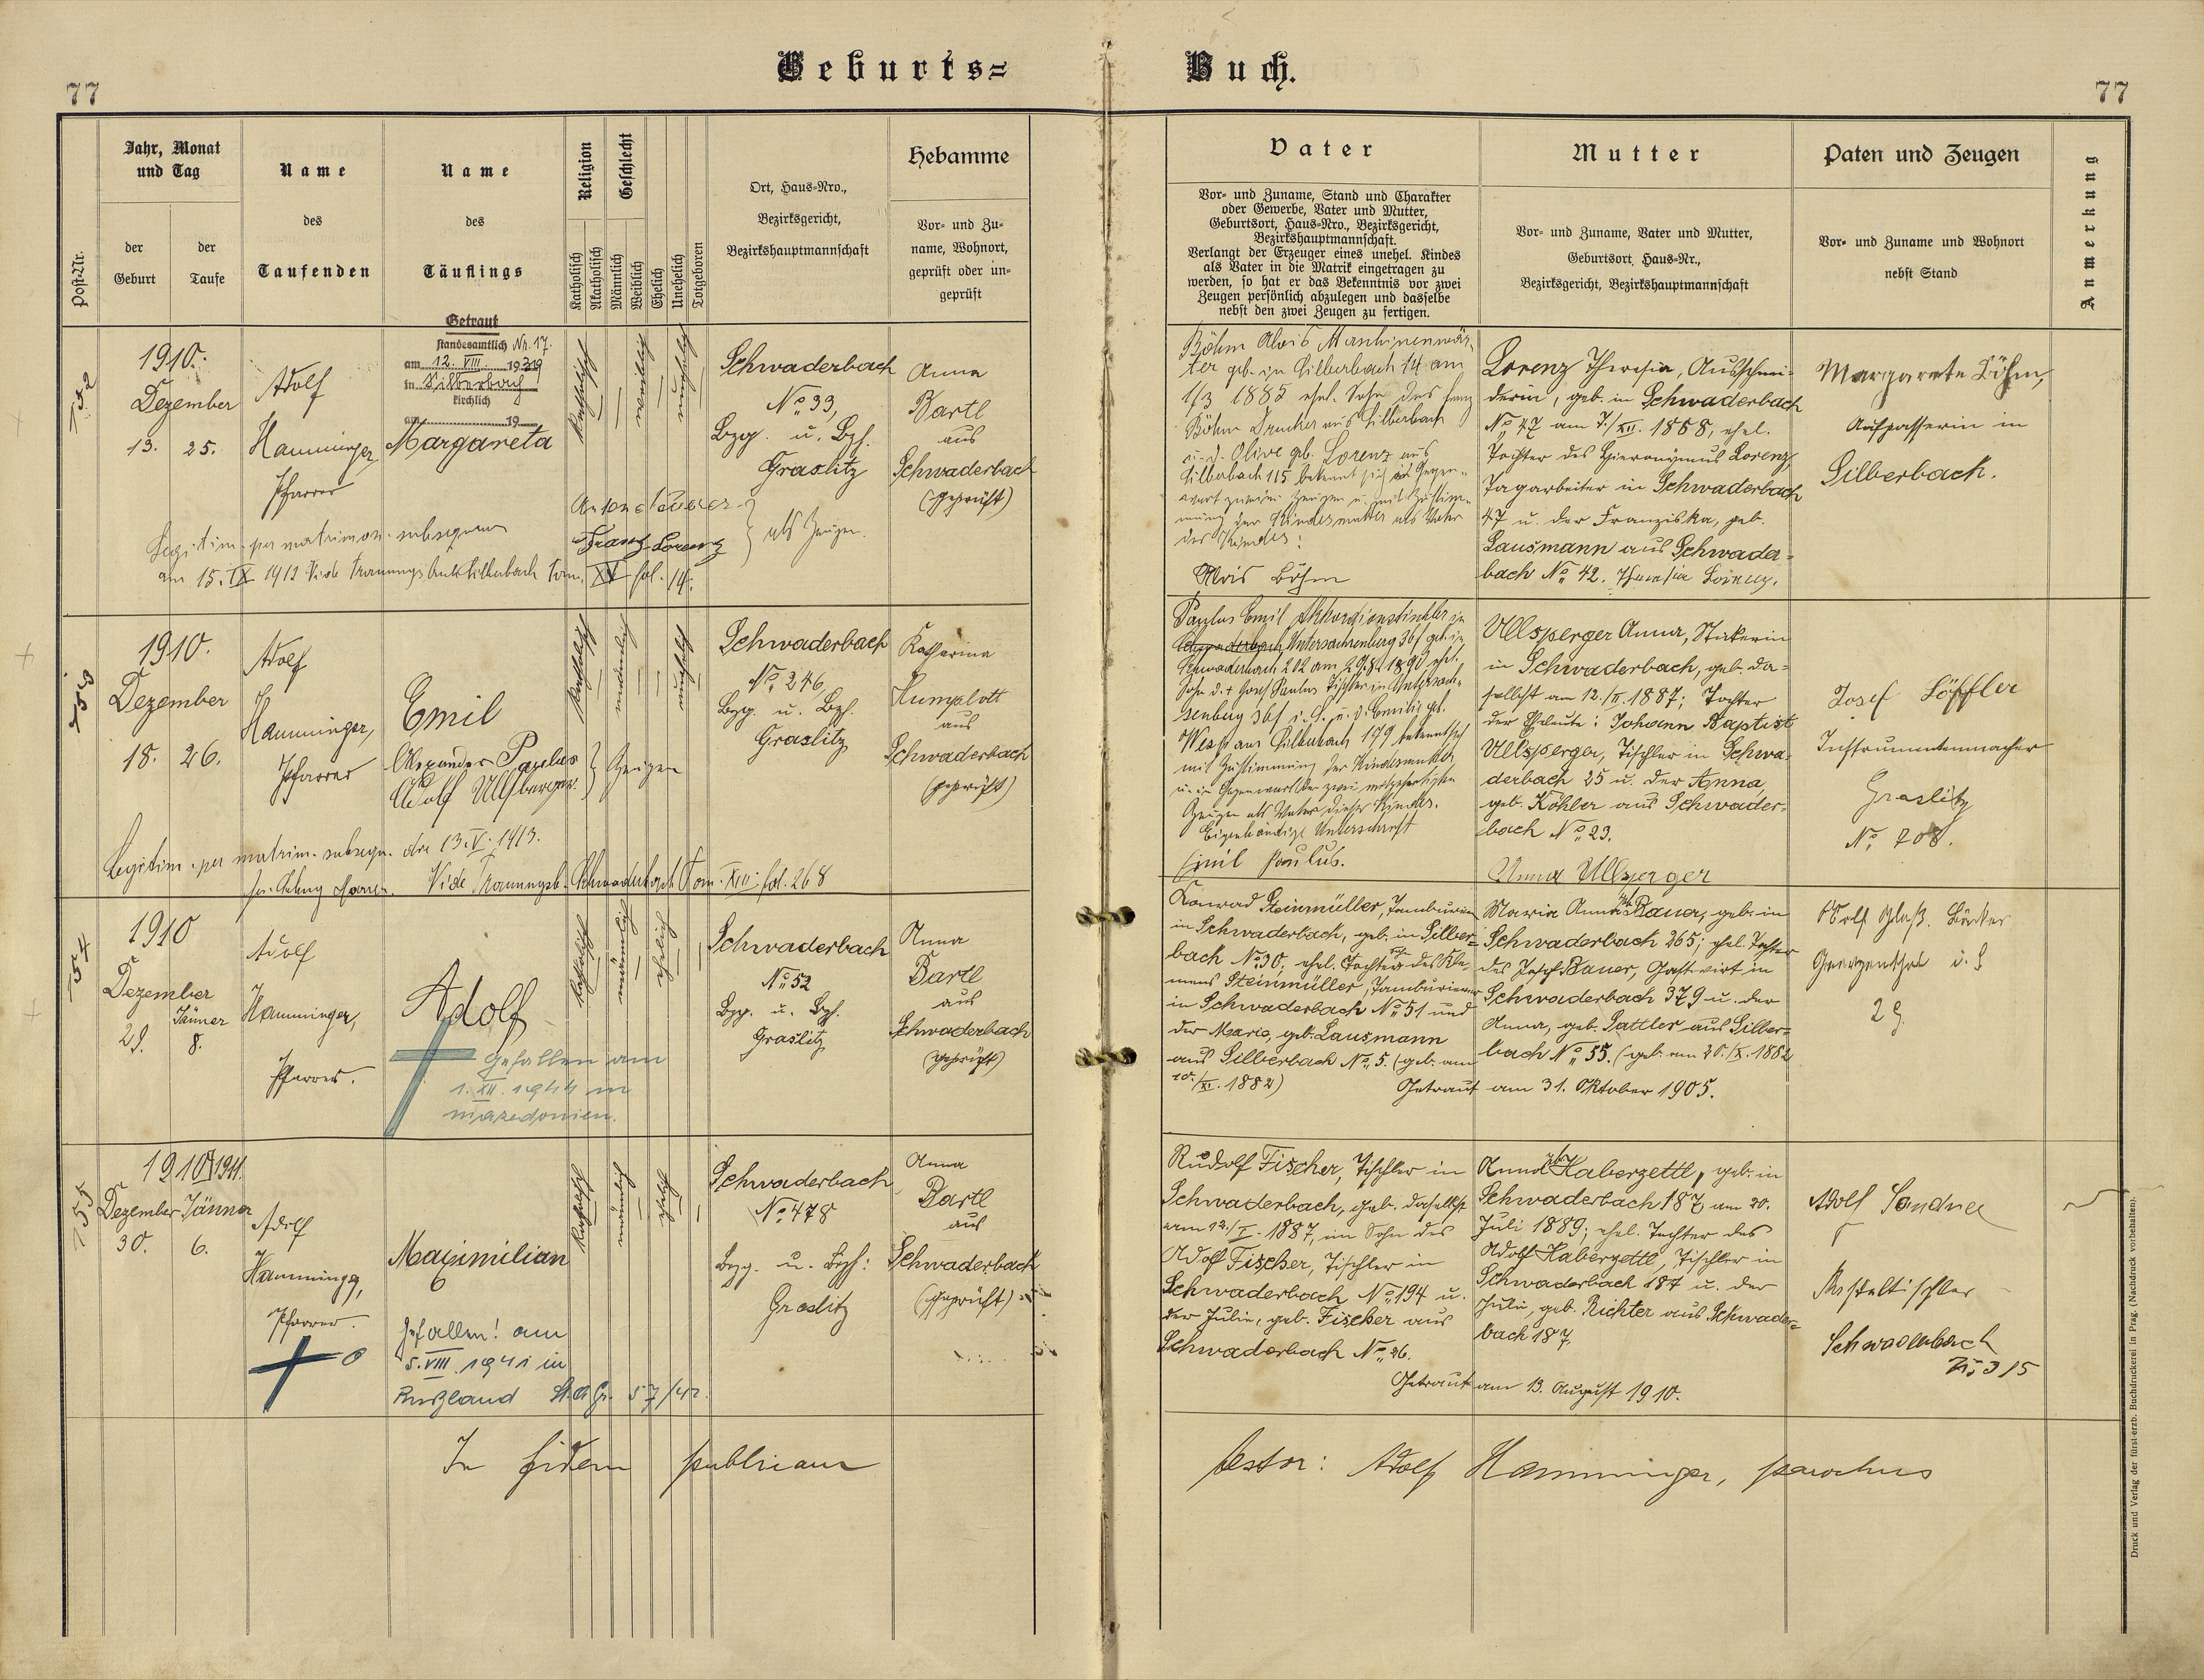 Geburts= Buch.
77
77
Post-Nr.
Jahr, Monat
und Tag
der
Geburt
der
Taufe
Name
des
Taufenden
Name
des
Täuflings
Religion
Katholisch
Akatholisch
Geschlecht
Männlich
Weiblich
Ehelich
Unehelich
Totgeboren
Ort, Haus-Nro.,
Bezirksgericht,
Bezirkshauptmannschaft
Hebamme
Vor- und Zu-
name, Wohnort,
geprüft oder un-
geprüft
Vater
Vor- und Zuname, Stand und Charakter
oder Gewerbe, Vater und Mutter,
Geburtsort, Haus-Nro., Bezirksgericht,
Bezirkshauptmannschaft.
Verlangt der Erzeuger eines unehel. Kindes
als Vater in die Matrik eingetragen zu
werden, so hat er das Bekenntnis vor zwei
Zeugen persönlich abzulegen und dasselbe
nebst den zwei Zeugen zu fertigen.
Mutter
Vor- und Zuname, Vater und Mutter,
Geburtsort, Haus-Nr.,
Bezirksgericht, Bezirkshauptmannschaft
Paten und Zeugen
Vor- und Zuname und Wohnort
nebst Stand
Anmerkung
752
1910.
Dezember
13. 25.
Adolf
Hamminger,
Pfarrer
Getraut
standesamtlich Nr. 17.
am 12. VIII 1939
in Silberbach
kirchlich
am 19
Margareta
katholisch
weiblich
unehelich
Schwaderbach
No 33,
Bzg. u. Bzh.
Graslitz
Anna
Bartl
aus
Schwaderbach
(geprüft)
Franz Lorenz
als Zeugen.
Legitim. per matrimon. subsequens
am 15. IX 1912 Vide Trauungsbuch Silberbach Tom. XV fol. 14.
Böhm Alois Maschinenwär-
ter geb. in Silberbach 14 am
1/3 1885 ehel. Sohn des Franz
Böhm Drucker aus Silberbach
u. d. Olive geb. Lorenz aus
Silberbach 115 bekennt sich in Gegen-
wart zweier Zeugen u. mit Zustim-
mung der Kindesmutter als Vater
des Kindes:
Alois Böhm
Lorenz Theresia, Ausschnei-
derin, geb. in Schwaderbach
No 47 am 7./XII. 1888, ehel.
Tochter des Hieronymus Lorenz,
Tagarbeiter in Schwaderbach
47 u. der Franziska, geb.
Lausmann aus Schwader-
bach No 42. Theresia Lorenz.
Margarete Böhm,
Aufpasserin in
Silberbach.
753
1910.
Dezember
18. 26.
Adolf
Hamminger,
Pfarrer
Emil
Alexander Paulus
Adolf Ullsperger
Zeugen
katholisch
männlich
unehelich
Schwaderbach
No 246
Bzg. u. Bzh.
Graslitz
Katharina
Humplott
aus
Schwaderbach
(geprüft)
Legitim. per matrim. subsequ. die 13. V. 1913.
Vide Trauungsb. Schwaderbach Tom. XIII. fol. 268
Paulus Emil Akkordionstischler in
Schwaderbach, Untersachsenberg 36f geb. in
Schwaderbach 202 am 29.8. 1890 ehel.
Sohn d. + Josef Paulus Tischler in Untersach-
senberg 36f i. S. u. d. Emilie geb.
Weiß aus Silberbach 179 bekennt sich
mit Zustimmung der Kindesmutter
u. in Gegenwart der zwei mitgefertigten
Zeugen als Vater dieses Kindes.
Eigenhändige Unterschrift
Emil Paulus.
Ullsperger Anna, Stickerin
in Schwaderbach, geb. da-
selbst am 12./II. 1887; Tochter
der Eheleute: Johann Baptist
Ullsperger, Tischler in Schwa-
derbach 25 u. der Anna,
geb. Köhler aus Schwader-
bach No 23.
Anna Ullsperger
Josef Löffler
Instrumentenmacher
Graslitz
No 708.
754
1910
Dezember
Jänner
29. 8.
Adolf
Hamminger,
Pfarrer.
Adolf
gefallen am
1. XII. 1944 in
Mazedonien.
katholisch
männlich
ehelich
Schwaderbach
No 52
Bzg. u. Bzh.
Graslitz
Anna
Bartl
aus
Schwaderbach
(geprüft)
Konrad Steinmüller, Tambourier
in Schwaderbach, geb. in Silber-
bach No 30; ehel. Sohn des Kle-
mens Steinmüller, Tambourierer
in Schwaderbach No 51 und
der Marie, geb. Lausmann
aus Silberbach No 5. (geb. am
10./XI. 1882)
Maria Anna geb. Bauer, geb. in
Schwaderbach 265; ehel. Tochter
des Josef Bauer, Gastwirt in
Schwaderbach 379 u. der
Anna, geb. Sattler aus Silber-
bach No 55. (geb. am 20./X. 1882
Getraut am 31. Oktober 1905.
Adolf Glaß. Bäcker
Georgenthal i. S
29.
755
1910/1911.
Dezember Jänner
30. 6.
Adolf
Hamminger,
Pfarrer.
Maximilian
Gefallen! am
5. VIII. 1941 in
Rußland St. A. Gr. 57/42.
katholisch
männlich
ehelich
Schwaderbach
No 478
Bzg. u. Bzh:
Graslitz
Anna
Bartl
aus
Schwaderbach
(geprüft)
Rudolf Fischer, Tischler in
Schwaderbach, geb. daselbst
am 12./I. 1887, ein Sohn des
Adolf Fischer, Tischler in
Schwaderbach No 194 u.
der Julie, geb. Fischer aus
Schwaderbach No 26.
Anna geb. Haberzettl, geb. in
Schwaderbach 187 am 20.
Juli 1889; ehel. Tochter des
Adolf Haberzettl, Tischler in
Schwaderbach 187 u. der
Julie, geb. Richter aus Schwader-
bach 187.
Getraut am 13. August 1910.
Adolf Sandner
Schwaderbach
No 315
In fidem publicam testor: Adolf Hamminger, parochus
Druck und Verlag der fürst-erzb. Buchdruckerei in Prag. (Nachdruck vorbehalten).